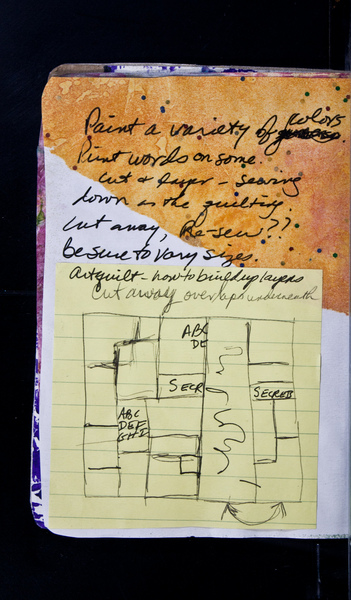 Paint a variety of colors.
Print words on some.
Cut & layer - sewing
down as the quilting.
Cut away, Re-sew??
Be sure to vary sizes.
Art quilt - how to build up layers
Cut away overlaps underneath
ABC
DE
SECR
SECRETS
ABC
DEF
GHI